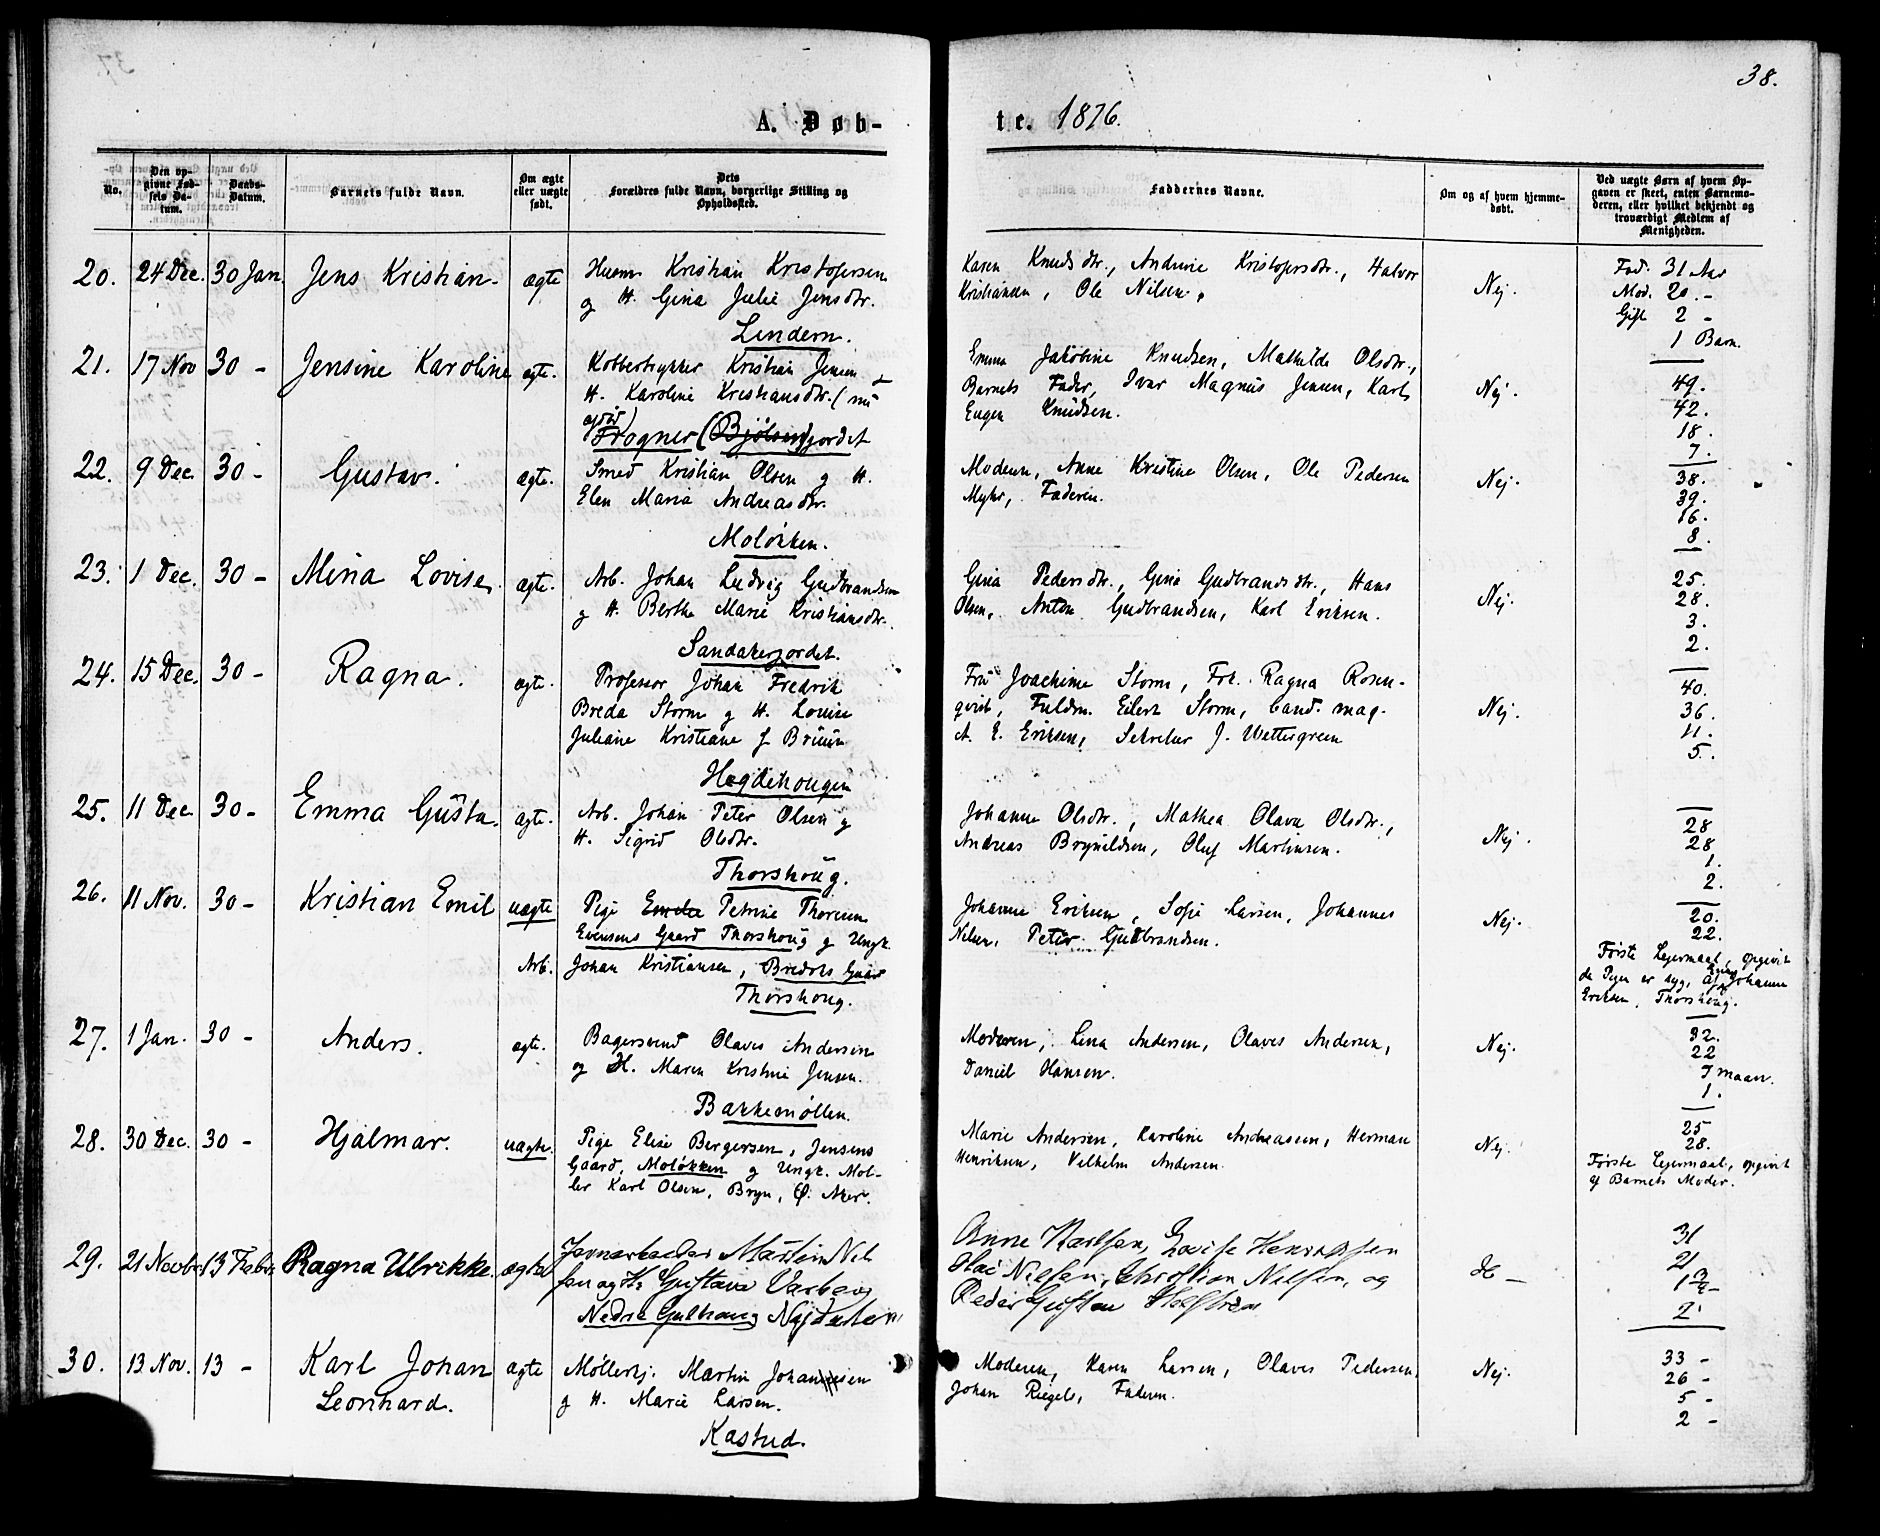 38.
A. Døb-
te. 1876.
No.
Den op-
givne Fød-
sels Da-
tum.
Daabs-
Datum.
Barnets fulde Navn.
Om ægte
eller uægte
født.
Dets
Forældres fulde Navn, borgerlige Stilling og
Opholdssted.
Faddernes Navne.
Om og af hvem hjemme-
døbt.
Ved uægte Børn af hvem Op-
gaven er skeet, enten Barnemo-
deren, eller hvilket bekjendt og
troværdigt Medlem af
Menigheden.
20. 24 Dec. 30 Jan. Jens Kristian. ægte
Husm. Kristian Kristofersen
og H. Gina Julie Jensdtr.
Lindern.
Karen Knudsdtr., Andrine Kristofersdtr., Halvor
Kristiansen, Ole Nilsen.
Nej.
Fad. 31 Aar
Mod. 20. -
Gift 2 -
1 Barn.
21. 17 Nov 30 - Jensine Karoline ægte.
Kobbertrykker Kristian Jensen
H. Karoline Kristiansdtr. (nu
Frogner (Bjølsenjordet
Emma Jakobine Knudsen, Mathilde Olsdtr.,
Barnets Fader, Ivar Magnus Jensen, Karl
Eugen Knudsen.
Nej.
49.
42.
18.
7.
22. 9 Dec. 30 - Gustav. ægte.
Smed Kristian Olsen og H.
Elen Maria Andreasdtr.
Moløkken.
Moderen, Anne Kristine Olsen, Ole Pedersen
Myhr, Faderen.
Nej.
38.
39.
16.
8.
23. 1 Dec. 30 - Mina Lovise. ægte.
Arb. Johan Ludvig Gudbrandsen
og H. Berthe Marie Kristiansdtr.
Sandakerjordet.
Gina Pedersdtr., Gina Gudbrandsdtr., Hans
Olsen, Anton Gudbrandsen, Karl Eriksen.
Nej.
25.
28.
3.
2.
24. 15 Dec. 30 - Ragna. ægte.
Professor Johan Fredrik
Breda Storm og H. Louise
Juliane Kristiane f. Bruun
Hegdehougen
Fru Joachime Storm, Frk. Ragna Rosen-
qvist, Fuldm. Eilert Storm, Cand. mag.
A. E. Eriksen, Sekretær J. Wettergreen
Nej.
40.
36.
11.
5.
25. 11 Dec. 30 - Emma Gusta. ægte.
Arb. Johan Peter Olsen og
H. Sigrid Olsdtr.
Thorshoug.
Johanne Olsdtr., Mathea Olava Olsdtr.,
Andreas Brynildsen, Oluf Martinsen.
Nej.
28
28
1.
2.
26. 11 Nov. 30 - Kristian Emil uægte
Pige Emelie Petrine Thoresen
Evensens Gaard Thorshoug og Ungk.
Arb. Johan Kristiansen, Bredvls Gaar
Thorshoug.
Johanne Eriksen, Sofie Larsen, Johannes
Nilsen, Peter Gudbrandsen.
Nej.
20.
22.
Første Lejermaal, opgivet
da Pigen er syg, af Johanne
Eriksen, Thorshoug.
27. 1 Jan. 30 - Anders. ægte.
Bagersvend Olaves Andersen
og H. Maren Kristine Jensen.
Bakkemøllen.
Moderen, Lina Andersen, Olaves Andersen,
Daniel Hansen.
Nej.
32.
22
7 maan.
1.
28. 30 Dec. 30 - Hjalmar. uægte.
Pige Elise Bergersen, Jensens
Gaard, Moløkken og Ungk. Møl-
ler Karl Olsen, Bryn, Ø. Aker.
Marie Andersen, Karoline Andreassen, Herman
Henriksen, Vilhelm Andersen.
Nej.
25
28.
Første Lejermaal, opgivet
af Barnets Moder.
29. 21 Novbr. 13 Febr. Ragna Ulrikke. ægte
Jernarbeider Martin Nil-
sen og H. Gustava
Nedre
Anne Karlsen, Lovise
Nielsen, Christian Nilsen, og
Peder Gustav
do -
31
21
1 1/2 -
2
30. 13 Nov. 13 - Karl Johan
Leonhard. ægte
Møllerkj. Martin Johannesen
og H. Marie Larsen.
Kastud.
Moderen, Karen Larsen, Olaves Pedersen,
Johan Riegels, Faderen.
Nej.
33 -
26 -
5 -
2 -